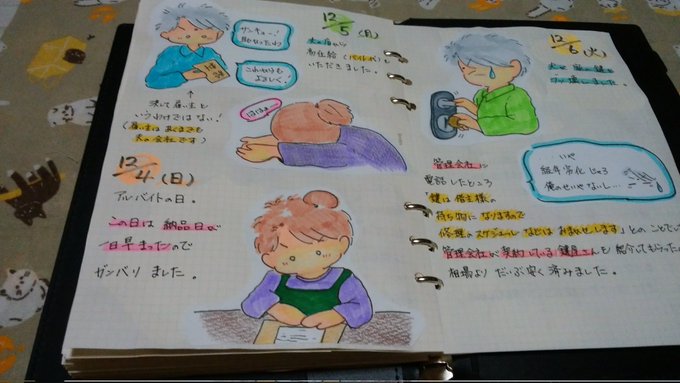 サンキュー!
助かったわ
これからも
よろしく!
給料
↑
決して雇い主と
いうわけではない!
(雇い主はあくまでも
夫の会社です)
12/4(日)
アルバイトの日。
この日は納品日が
1日早まったので
ガンバリました。
12/5(月)
夫の
お給料(バイト代)を
いただきました。
ははぁ〜
12/6(火)
夫が
壊しました。
いや
経年劣化じゃろ
俺のせいやないし…
管理会社に
電話したところ
「鍵は借主様の
持ち物になりますので
修理のスケジュールなどはお任せします」とのことで
管理会社が契約している鍵屋さんを紹介してもらったの
相場よりだいぶ安く済みました。